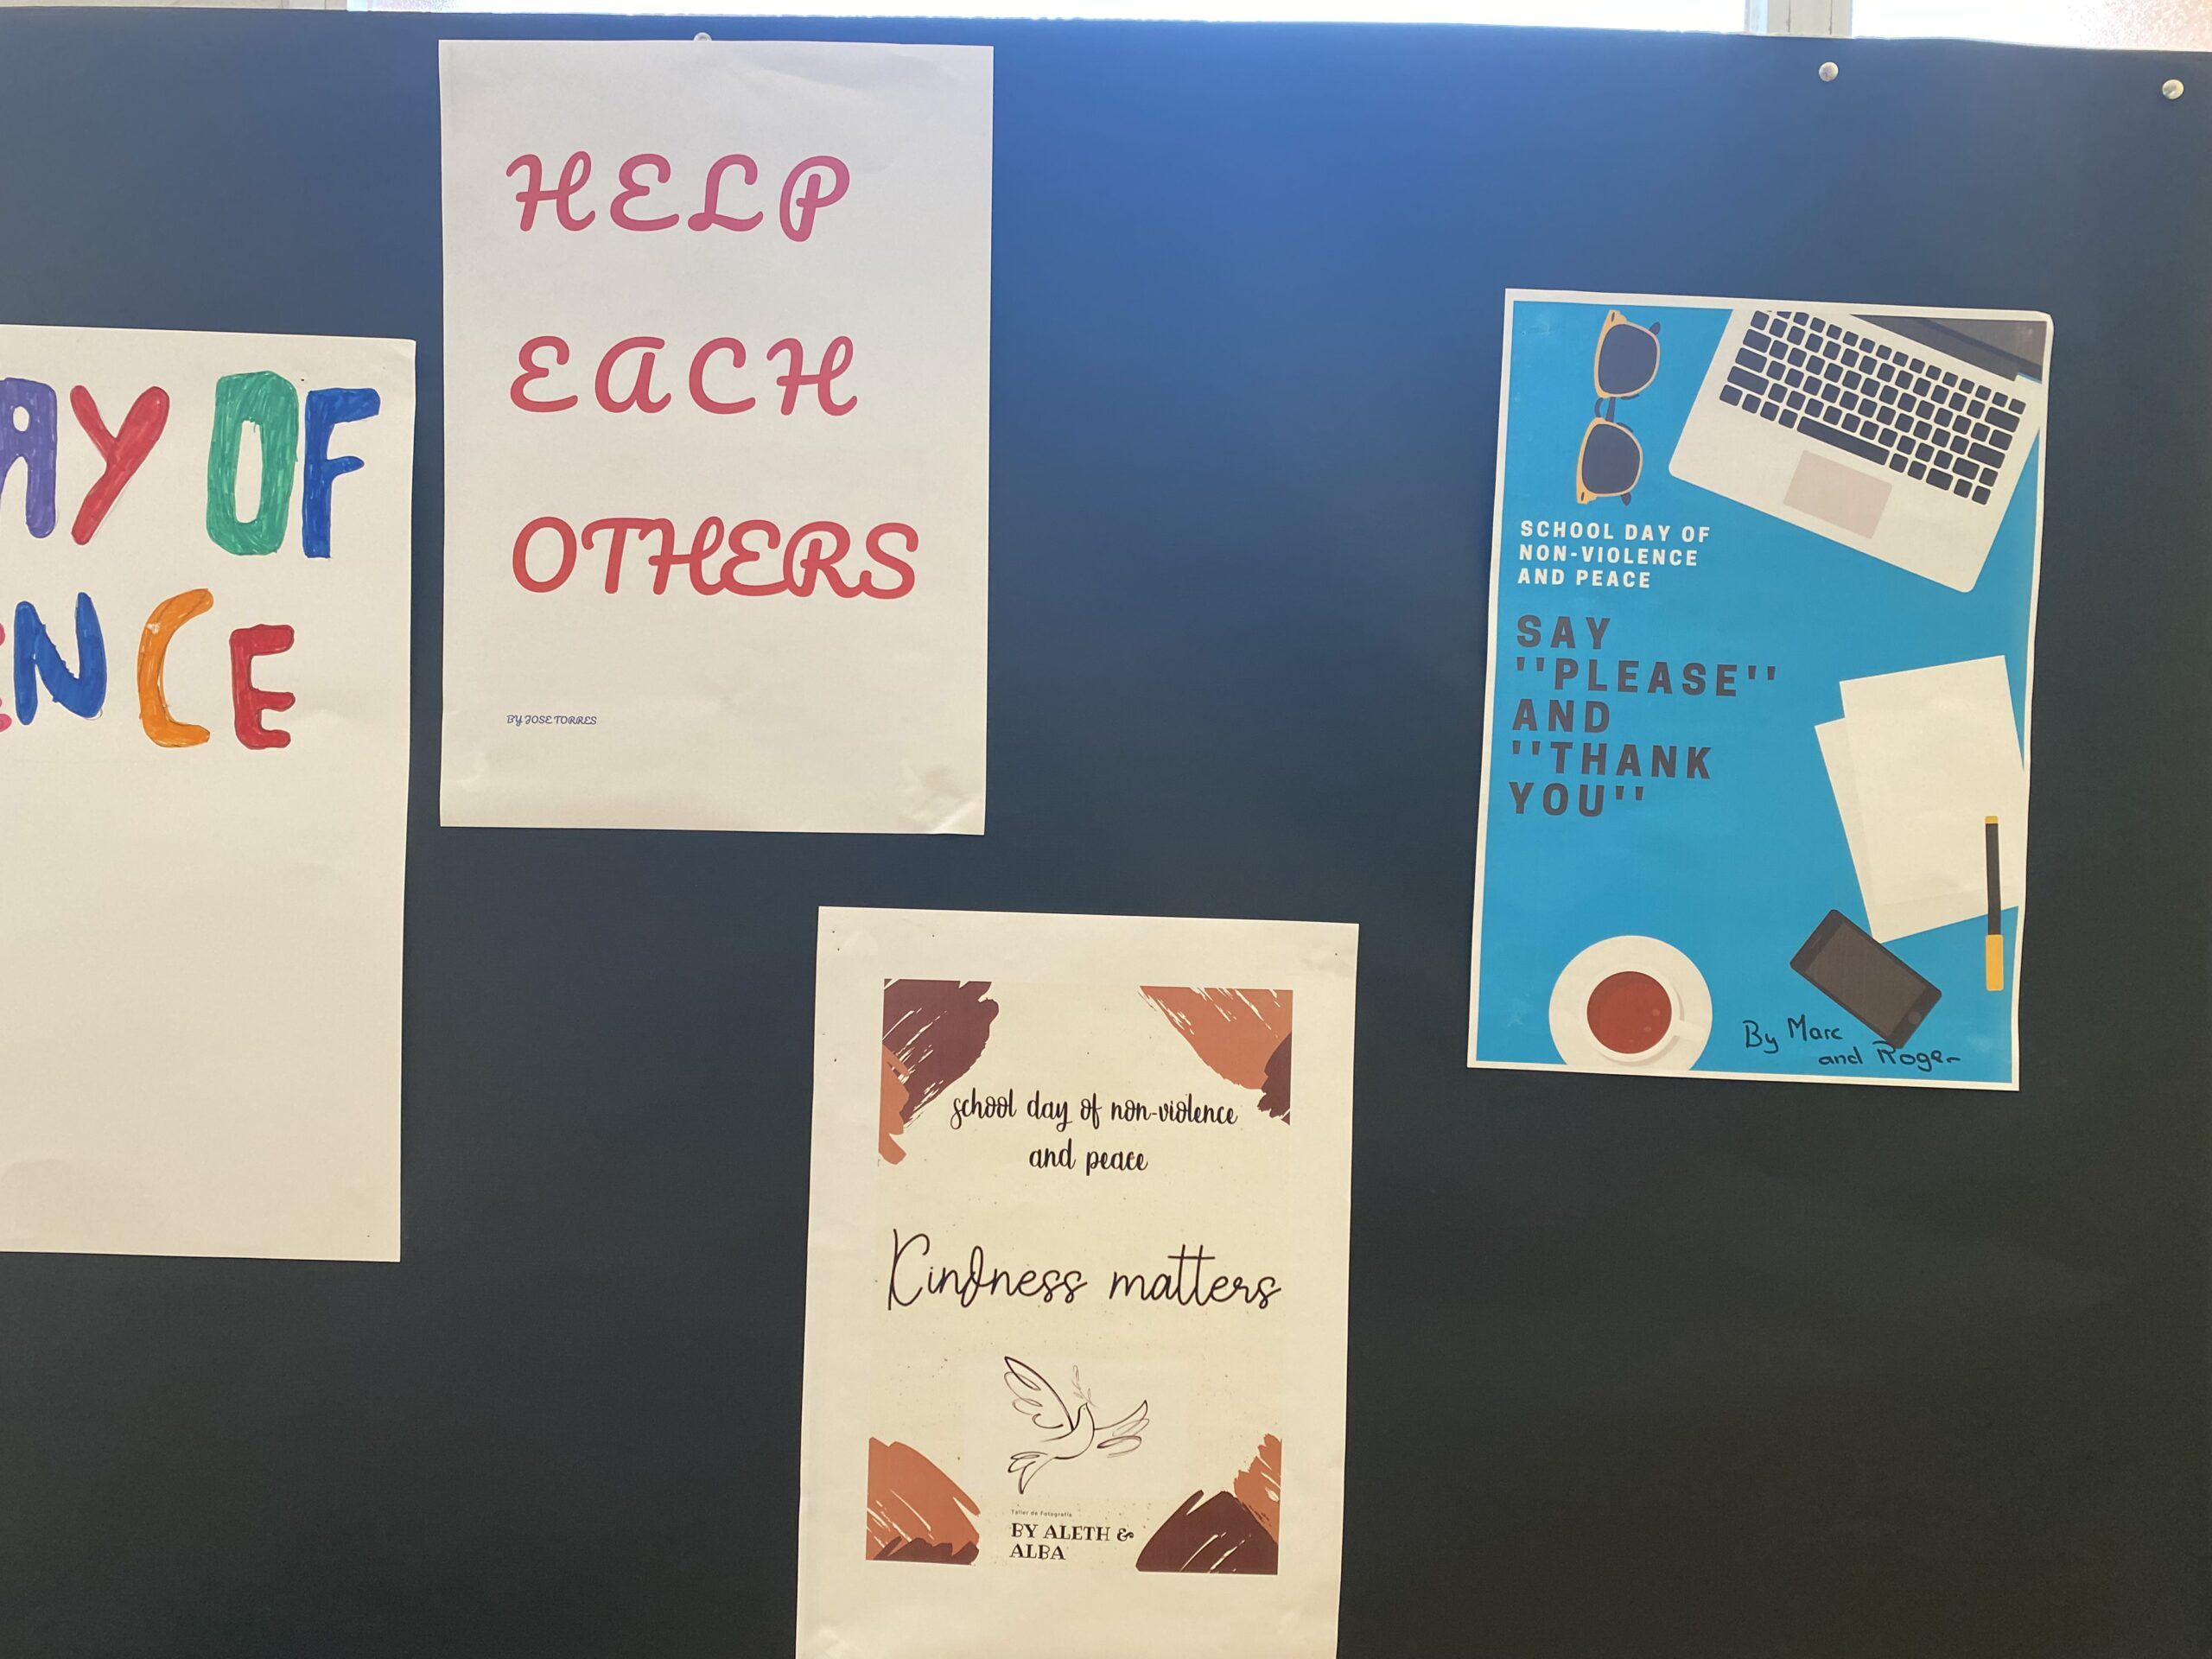 AY OF
NCE
HELP
EACH
OTHERS
BY JOSE TORRES
SCHOOL DAY OF
NON-VIOLENCE
AND PEACE
SAY
''PLEASE''
AND
''THANK
YOU''
By Marc
and Roger
school day of non-violence
and peace
Kindness matters
Taller de Fotografía
BY ALETH &
ALBA